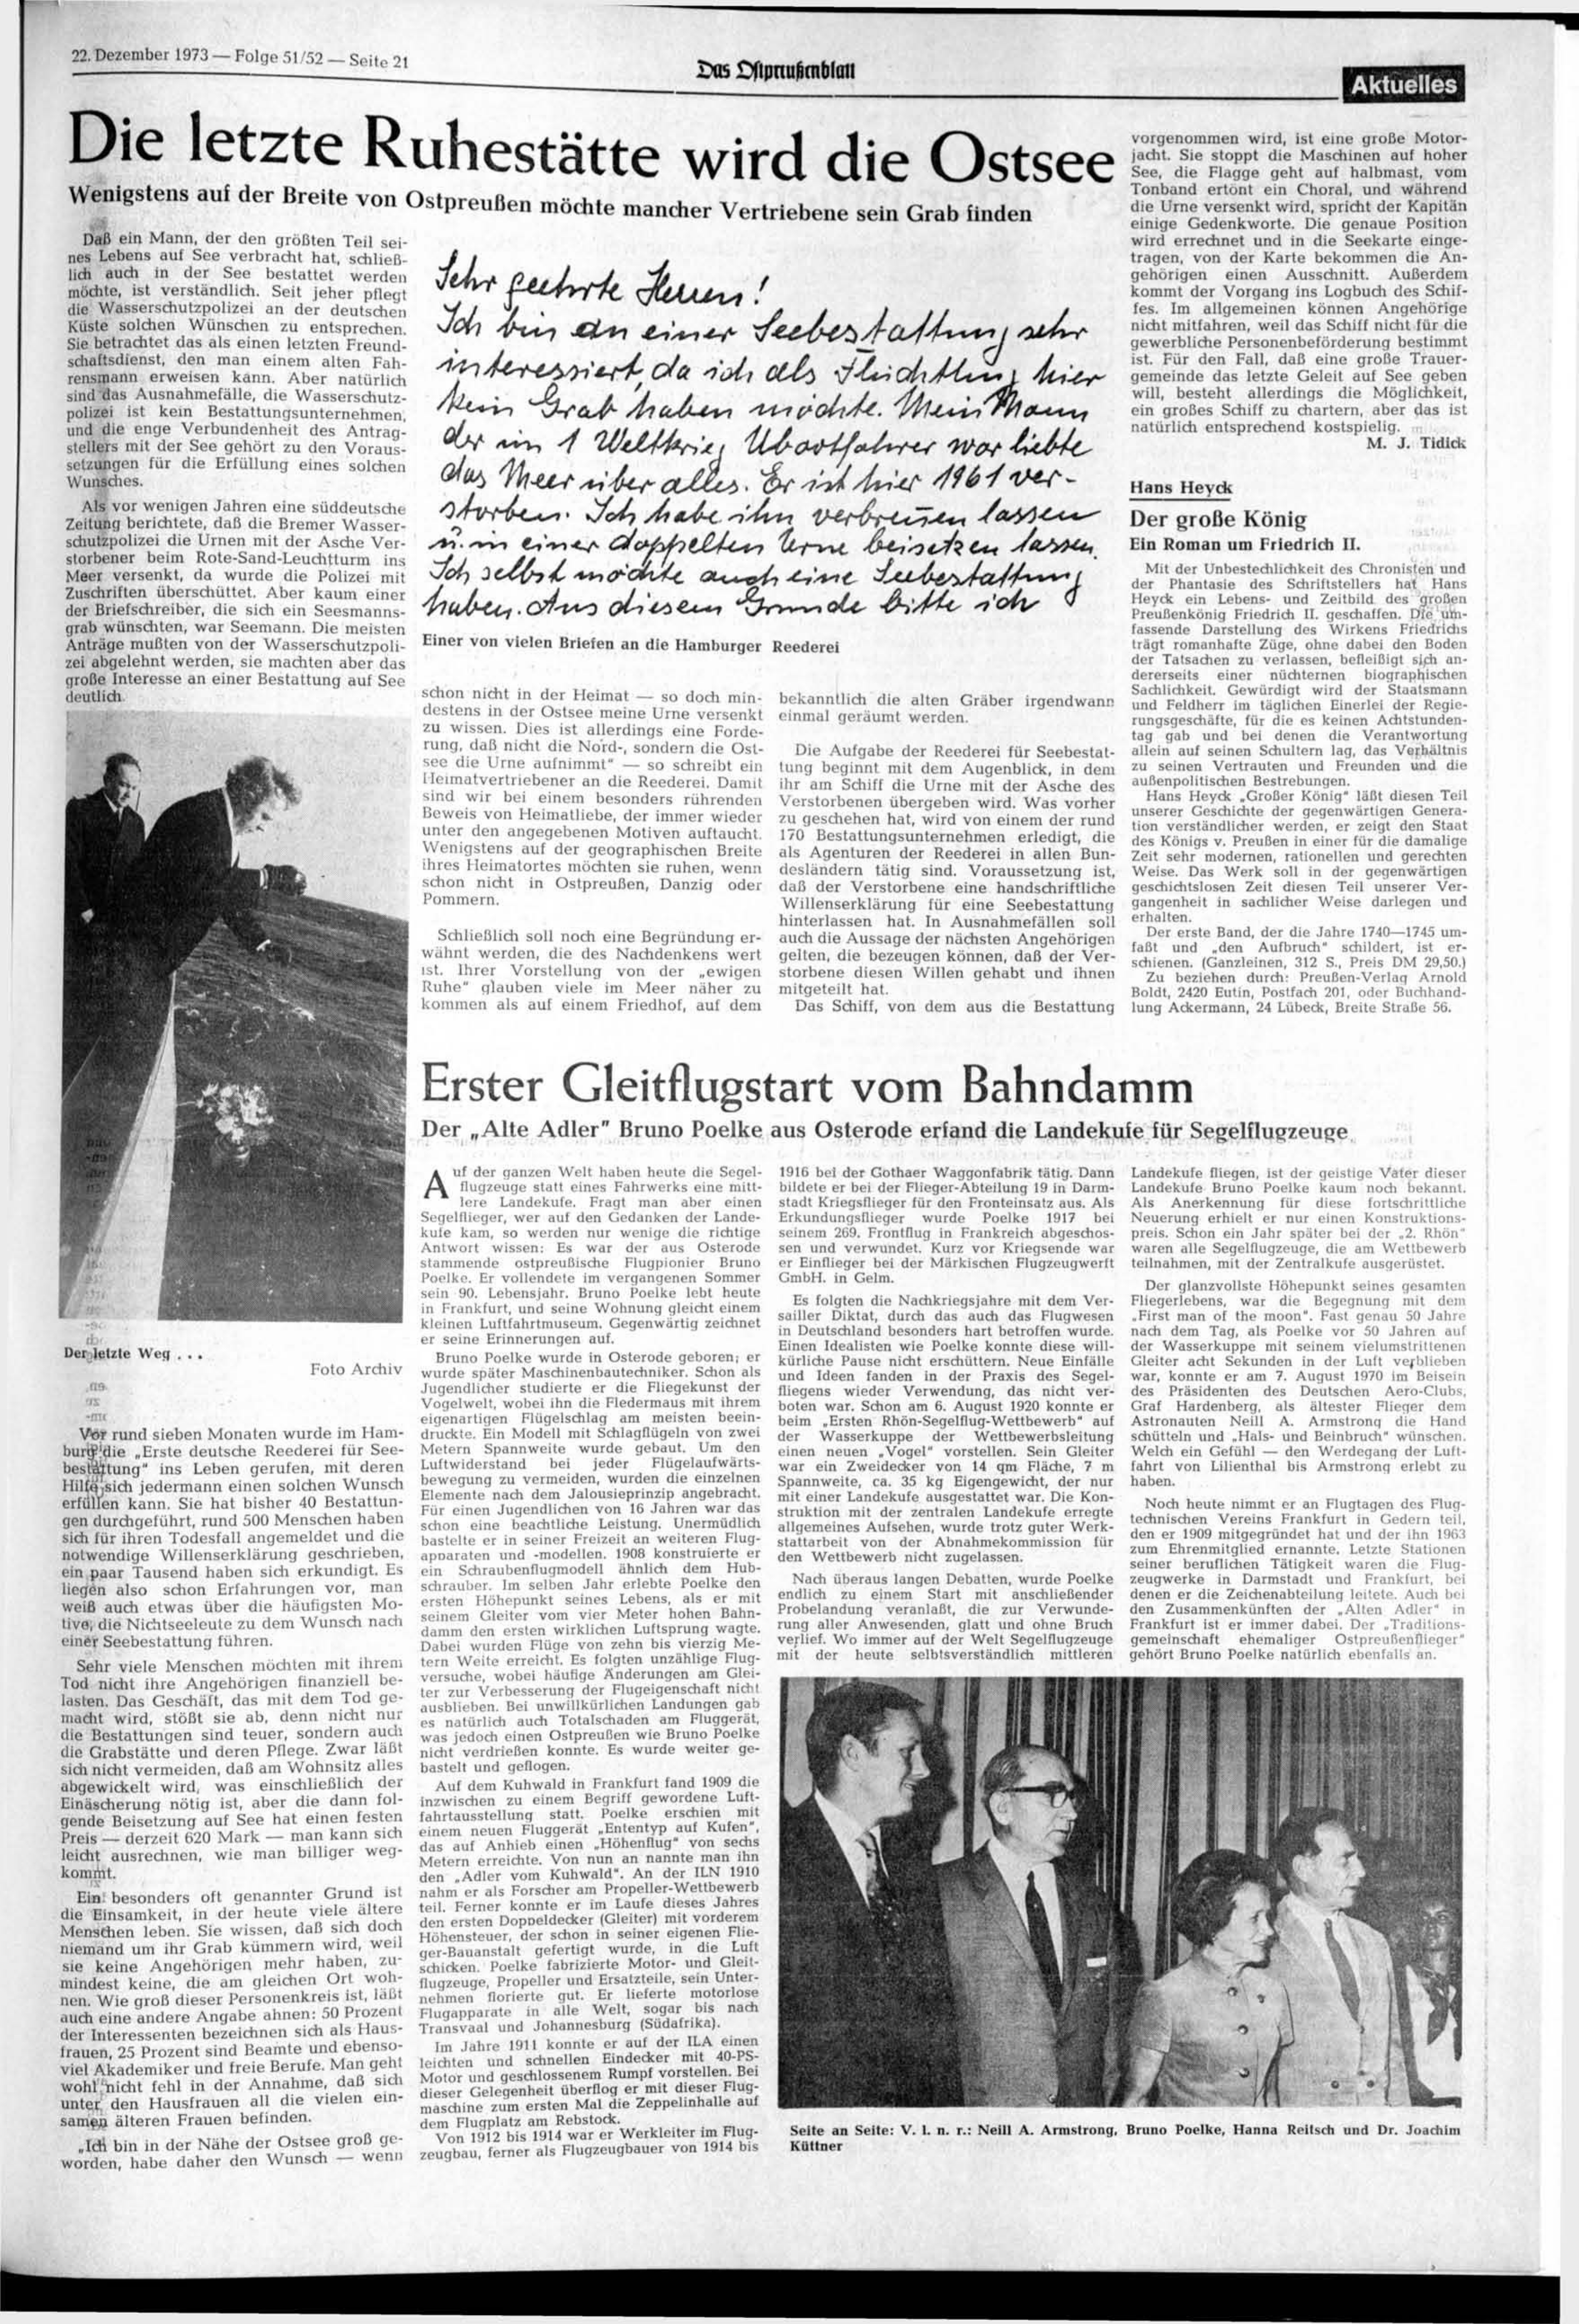 22. Dezember 1973 — Folge 51/52 — Seite 21
Das Ostpreußenblatt
Aktuelles
Die letzte Ruhestätte wird die Ostsee
Wenigstens auf der Breite von Ostpreußen möchte mancher Vertriebene sein Grab finden
Daß ein Mann, der den größten Teil sei-
nes Lebens auf See verbracht hat, schließ-
lich auch in der See bestattet werden
möchte, ist verständlich. Seit jeher pflegt
die Wasserschutzpolizei an der deutschen
Küste solchen Wünschen zu entsprechen.
Sie betrachtet das als einen letzten Freund-
schaftsdienst, den man einem alten Fah-
rensmann erweisen kann. Aber natürlich
sind das Ausnahmefälle, die Wasserschutz-
polizei ist kein Bestattungsunternehmen,
und die enge Verbundenheit des Antrag-
stellers mit der See gehört zu den Voraus-
setzungen für die Erfüllung eines solchen
Wunsches.
Als vor wenigen Jahren eine süddeutsche
Zeitung berichtete, daß die Bremer Wasser-
schutzpolizei die Urnen mit der Asche Ver-
storbener beim Rote-Sand-Leuchtturm ins
Meer versenkt, da wurde die Polizei mit
Zuschriften überschüttet. Aber kaum einer
der Briefschreiber, die sich ein Seesmanns-
grab wünschten, war Seemann. Die meisten
Anträge mußten von der Wasserschutzpoli-
zei abgelehnt werden, sie machten aber das
große Interesse an einer Bestattung auf See
deutlich.
Der letzte Weg . . .
Foto Archiv
Vor rund sieben Monaten wurde im Ham-
burg die „Erste deutsche Reederei für See-
bestattung" ins Leben gerufen, mit deren
Hilfe sich jedermann einen solchen Wunsch
erfüllen kann. Sie hat bisher 40 Bestattun-
gen durchgeführt, rund 500 Menschen haben
sich für ihren Todesfall angemeldet und die
notwendige Willenserklärung geschrieben,
ein paar Tausend haben sich erkundigt. Es
liegen also schon Erfahrungen vor, man
weiß auch etwas über die häufigsten Mo-
tive, die Nichtseeleute zu dem Wunsch nach
einer Seebestattung führen.
Sehr viele Menschen möchten mit ihrem
Tod nicht ihre Angehörigen finanziell be-
lasten. Das Geschäft, das mit dem Tod ge-
macht wird, stößt sie ab, denn nicht nur
die Bestattungen sind teuer, sondern auch
die Grabstätte und deren Pflege. Zwar läßt
sich nicht vermeiden, daß am Wohnsitz alles
abgewickelt wird, was einschließlich der
Einäscherung nötig ist, aber die dann fol-
gende Beisetzung auf See hat einen festen
Preis — derzeit 620 Mark — man kann sich
leicht ausrechnen, wie man billiger weg-
kommt.
Ein besonders oft genannter Grund ist
die Einsamkeit, in der heute viele ältere
Menschen leben. Sie wissen, daß sich doch
niemand um ihr Grab kümmern wird, weil
sie keine Angehörigen mehr haben, zu-
mindest keine, die am gleichen Ort woh-
nen. Wie groß dieser Personenkreis ist, läßt
auch eine andere Angabe ahnen: 50 Prozent
der Interessenten bezeichnen sich als Haus-
frauen, 25 Prozent sind Beamte und ebenso-
viel Akademiker und freie Berufe. Man geht
wohl nicht fehl in der Annahme, daß sich
unter den Hausfrauen all die vielen ein-
samen älteren Frauen befinden.
„Ich bin in der Nähe der Ostsee groß ge-
worden, habe daher den Wunsch — wenn
Sehr geehrte Herren!
Ich bin an einer Seebestattung sehr
interessiert, da ich als Flüchtling hier
kein Grab haben möchte. Mein Mann
der im 1 Weltkrieg Ubootfahrer war liebte
das Meer über alles. Er ist hier 1961 ver-
storben. Ich habe ihn verbrennen lassen
u. in einer doppelten Urne beisetzen lassen.
Ich selbst möchte auch eine Seebestattung
haben. Aus diesem Grunde bitte ich
Einer von vielen Briefen an die Hamburger Reederei
schon nicht in der Heimat — so doch min-
destens in der Ostsee meine Urne versenkt
zu wissen. Dies ist allerdings eine Forde-
rung, daß nicht die Nord-, sondern die Ost-
see die Urne aufnimmt" — so schreibt ein
Heimatvertriebener an die Reederei. Damit
sind wir bei einem besonders rührenden
Beweis von Heimatliebe, der immer wieder
unter den angegebenen Motiven auftaucht.
Wenigstens auf der geographischen Breite
ihres Heimatortes möchten sie ruhen, wenn
schon nicht in Ostpreußen, Danzig oder
Pommern.
Schließlich soll noch eine Begründung er-
wähnt werden, die des Nachdenkens wert
ist. Ihrer Vorstellung von der „ewigen
Ruhe" glauben viele im Meer näher zu
kommen als auf einem Friedhof, auf dem
bekanntlich die alten Gräber irgendwann
einmal geräumt werden.
Die Aufgabe der Reederei für Seebestat-
tung beginnt mit dem Augenblick, in dem
ihr am Schiff die Urne mit der Asche des
Verstorbenen übergeben wird. Was vorher
zu geschehen hat, wird von einem der rund
170 Bestattungsunternehmen erledigt, die
als Agenturen der Reederei in allen Bun-
desländern tätig sind. Voraussetzung ist,
daß der Verstorbene eine handschriftliche
Willenserklärung für eine Seebestattung
hinterlassen hat. In Ausnahmefällen soll
auch die Aussage der nächsten Angehörigen
gelten, die bezeugen können, daß der Ver-
storbene diesen Willen gehabt und ihnen
mitgeteilt hat.
Das Schiff, von dem aus die Bestattung
vorgenommen wird, ist eine große Motor-
jacht. Sie stoppt die Maschinen auf hoher
See, die Flagge geht auf halbmast, vom
Tonband ertönt ein Choral, und während
die Urne versenkt wird, spricht der Kapitän
einige Gedenkworte. Die genaue Position
wird errechnet und in die Seekarte einge-
tragen, von der Karte bekommen die An-
gehörigen einen Ausschnitt. Außerdem
kommt der Vorgang ins Logbuch des Schif-
fes. Im allgemeinen können Angehörige
nicht mitfahren, weil das Schiff nicht für die
gewerbliche Personenbeförderung bestimmt
ist. Für den Fall, daß eine große Trauer-
gemeinde das letzte Geleit auf See geben
will, besteht allerdings die Möglichkeit,
ein großes Schiff zu chartern, aber das ist
natürlich entsprechend kostspielig.
M. J. Tidick
Hans Heyck
Der große König
Ein Roman um Friedrich II.
Mit der Unbestechlichkeit des Chronisten und
der Phantasie des Schriftstellers hat Hans
Heyck ein Lebens- und Zeitbild des großen
Preußenkönig Friedrich II. geschaffen. Die um-
fassende Darstellung des Wirkens Friedrichs
trägt romanhafte Züge, ohne dabei den Boden
der Tatsachen zu verlassen, befleißigt sich an-
dererseits einer nüchternen biographischen
Sachlichkeit. Gewürdigt wird der Staatsmann
und Feldherr im täglichen Einerlei der Regie-
rungsgeschäfte, für die es keinen Achtstunden-
tag gab und bei denen die Verantwortung
allein auf seinen Schultern lag, das Verhältnis
zu seinen Vertrauten und Freunden und die
außenpolitischen Bestrebungen.
Hans Heyck „Großer König" läßt diesen Teil
unserer Geschichte der gegenwärtigen Genera-
tion verständlicher werden, er zeigt den Staat
des Königs v. Preußen in einer für die damalige
Zeit sehr modernen, rationellen und gerechten
Weise. Das Werk soll in der gegenwärtigen
geschichtslosen Zeit diesen Teil unserer Ver-
gangenheit in sachlicher Weise darlegen und
erhalten.
Der erste Band, der die Jahre 1740—1745 um-
faßt und „den Aufbruch" schildert, ist er-
schienen. (Ganzleinen, 312 S., Preis DM 29,50.)
Zu beziehen durch: Preußen-Verlag Arnold
Boldt, 2420 Eutin, Postfach 201, oder Buchhand-
lung Ackermann, 24 Lübeck, Breite Straße 56.
Erster Gleitflugstart vom Bahndamm
Der „Alte Adler" Bruno Poelke aus Osterode erfand die Landekufe für Segelflugzeuge
Auf der ganzen Welt haben heute die Segel-
flugzeuge statt eines Fahrwerks eine mitt-
lere Landekufe. Fragt man aber einen
Segelflieger, wer auf den Gedanken der Lande-
kufe kam, so werden nur wenige die richtige
Antwort wissen: Es war der aus Osterode
stammende ostpreußische Flugpionier Bruno
Poelke. Er vollendete im vergangenen Sommer
sein 90. Lebensjahr. Bruno Poelke lebt heute
in Frankfurt, und seine Wohnung gleicht einem
kleinen Luftfahrtmuseum. Gegenwärtig zeichnet
er seine Erinnerungen auf.
Bruno Poelke wurde in Osterode geboren; er
wurde später Maschinenbautechniker. Schon als
Jugendlicher studierte er die Fliegekunst der
Vogelwelt, wobei ihn die Fledermaus mit ihrem
eigenartigen Flügelschlag am meisten beein-
druckte. Ein Modell mit Schlagflügeln von zwei
Metern Spannweite wurde gebaut. Um den
Luftwiderstand bei jeder Flügelaufwärts-
bewegung zu vermeiden, wurden die einzelnen
Elemente nach dem Jalousieprinzip angebracht.
Für einen Jugendlichen von 16 Jahren war das
schon eine beachtliche Leistung. Unermüdlich
bastelte er in seiner Freizeit an weiteren Flug-
apparaten und -modellen. 1908 konstruierte er
ein Schraubenflugmodell ähnlich dem Hub-
schrauber. Im selben Jahr erlebte Poelke den
ersten Höhepunkt seines Lebens, als er mit
seinem Gleiter vom vier Meter hohen Bahn-
damm den ersten wirklichen Luftsprung wagte.
Dabei wurden Flüge von zehn bis vierzig Me-
tern Weite erreicht. Es folgten unzählige Flug-
versuche, wobei häufige Änderungen am Glei-
ter zur Verbesserung der Flugeigenschaft nicht
ausblieben. Bei unwillkürlichen Landungen gab
es natürlich auch Totalschaden am Fluggerät,
was jedoch einen Ostpreußen wie Bruno Poelke
nicht verdrießen konnte. Es wurde weiter ge-
bastelt und geflogen.
Auf dem Kuhwald in Frankfurt fand 1909 die
inzwischen zu einem Begriff gewordene Luft-
fahrtausstellung statt. Poelke erschien mit
einem neuen Fluggerät „Ententyp auf Kufen",
das auf Anhieb einen „Höhenflug" von sechs
Metern erreichte. Von nun an nannte man ihn
den „Adler vom Kuhwald". An der ILN 1910
nahm er als Forscher am Propeller-Wettbewerb
teil. Ferner konnte er im Laufe dieses Jahres
den ersten Doppeldecker (Gleiter) mit vorderem
Höhensteuer, der schon in seiner eigenen Flie-
ger-Bauanstalt gefertigt wurde, in die Luft
schicken. Poelke fabrizierte Motor- und Gleit-
flugzeuge, Propeller und Ersatzteile, sein Unter-
nehmen florierte gut. Er lieferte motorlose
Flugapparate in alle Welt, sogar bis nach
Transvaal und Johannesburg (Südafrika).
Im Jahre 1911 konnte er auf der ILA einen
leichten und schnellen Eindecker mit 40-PS-
Motor und geschlossenem Rumpf vorstellen. Bei
dieser Gelegenheit überflog er mit dieser Flug-
maschine zum ersten Mal die Zeppelinhalle auf
dem Flugplatz am Rebstock.
Von 1912 bis 1914 war er Werkleiter im Flug-
zeugbau, ferner als Flugzeugbauer von 1914 bis
1916 bei der Gothaer Waggonfabrik tätig. Dann
bildete er bei der Flieger-Abteilung 19 in Darm-
stadt Kriegsflieger für den Fronteinsatz aus. Als
Erkundungsflieger wurde Poelke 1917 bei
seinem 269. Frontflug in Frankreich abgeschos-
sen und verwundet. Kurz vor Kriegsende war
er Einflieger bei der Märkischen Flugzeugwerft
GmbH. in Gelm.
Es folgten die Nachkriegsjahre mit dem Ver-
sailler Diktat, durch das auch das Flugwesen
in Deutschland besonders hart betroffen wurde.
Einen Idealisten wie Poelke konnte diese will-
kürliche Pause nicht erschüttern. Neue Einfälle
und Ideen fanden in der Praxis des Segel-
fliegens wieder Verwendung, das nicht ver-
boten war. Schon am 6. August 1920 konnte er
beim „Ersten Rhön-Segelflug-Wettbewerb" auf
der Wasserkuppe der Wettbewerbsleitung
einen neuen „Vogel" vorstellen. Sein Gleiter
war ein Zweidecker von 14 qm Fläche, 7 m
Spannweite, ca. 35 kg Eigengewicht, der nur
mit einer Landekufe ausgestattet war. Die Kon-
struktion mit der zentralen Landekufe erregte
allgemeines Aufsehen, wurde trotz guter Werk-
stattarbeit von der Abnahmekommission für
den Wettbewerb nicht zugelassen.
Nach überaus langen Debatten, wurde Poelke
endlich zu einem Start mit anschließender
Probelandung veranlaßt, die zur Verwunde-
rung aller Anwesenden, glatt und ohne Bruch
verlief. Wo immer auf der Welt Segelflugzeuge
mit der heute selbtsverständlich mittleren
Landekufe fliegen, ist der geistige Vater dieser
Landekufe Bruno Poelke kaum noch bekannt.
Als Anerkennung für diese fortschrittliche
Neuerung erhielt er nur einen Konstruktions-
preis. Schon ein Jahr später bei der „2. Rhön"
waren alle Segelflugzeuge, die am Wettbewerb
teilnahmen, mit der Zentralkufe ausgerüstet.
Der glanzvollste Höhepunkt seines gesamten
Fliegerlebens, war die Begegnung mit dem
„First man of the moon". Fast genau 50 Jahre
nach dem Tag, als Poelke vor 50 Jahren auf
der Wasserkuppe mit seinem vielumstrittenen
Gleiter acht Sekunden in der Luft verblieben
war, konnte er am 7. August 1970 im Beisein
des Präsidenten des Deutschen Aero-Clubs,
Graf Hardenberg, als ältester Flieger dem
Astronauten Neill A. Armstrong die Hand
schütteln und „Hals- und Beinbruch" wünschen.
Welch ein Gefühl — den Werdegang der Luft-
fahrt von Lilienthal bis Armstrong erlebt zu
haben.
Noch heute nimmt er an Flugtagen des Flug-
technischen Vereins Frankfurt in Gedern teil,
den er 1909 mitgegründet hat und der ihn 1963
zum Ehrenmitglied ernannte. Letzte Stationen
seiner beruflichen Tätigkeit waren die Flug-
zeugwerke in Darmstadt und Frankfurt, bei
denen er die Zeichenabteilung leitete. Auch bei
den Zusammenkünften der „Alten Adler" in
Frankfurt ist er immer dabei. Der „Traditions-
gemeinschaft ehemaliger Ostpreußenflieger"
gehört Bruno Poelke natürlich ebenfalls an.
Seite an Seite: V. l. n. r.: Neill A. Armstrong, Bruno Poelke, Hanna Reitsch und Dr. Joachim
Küttner